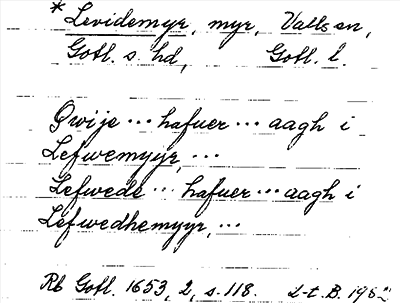 * Levidemyr, myr, Valls sn,
Gotl. s. hd, Gotl. l.
Qwije ... hafuer ... aagh i
Lefwemyyr, ...
Lefwede ... hafuer ... aagh i
Lefwedhemyyr, ...
Rb Gotl. 1653, 2, s. 118. L-t. B.